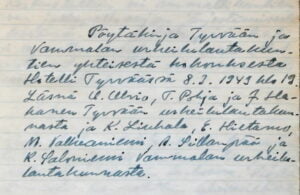 Pöytäkirja Tyrvään ja
Vammalan urheilulautakun-
tien yhteisestä kokouksesta
Hotelli Tyrväässä 8.3.1943 klo 19.
Läsnä U. Ulvio, T. Pohja ja J.
hanen Tyrvään urheilulautakun-
nasta ja K. Linhala, E. Hietamo,
M. Valkeaniemi, A. Sillanpää ja
K. Saloniemi Vammalan urheilu-
lautakunnasta.